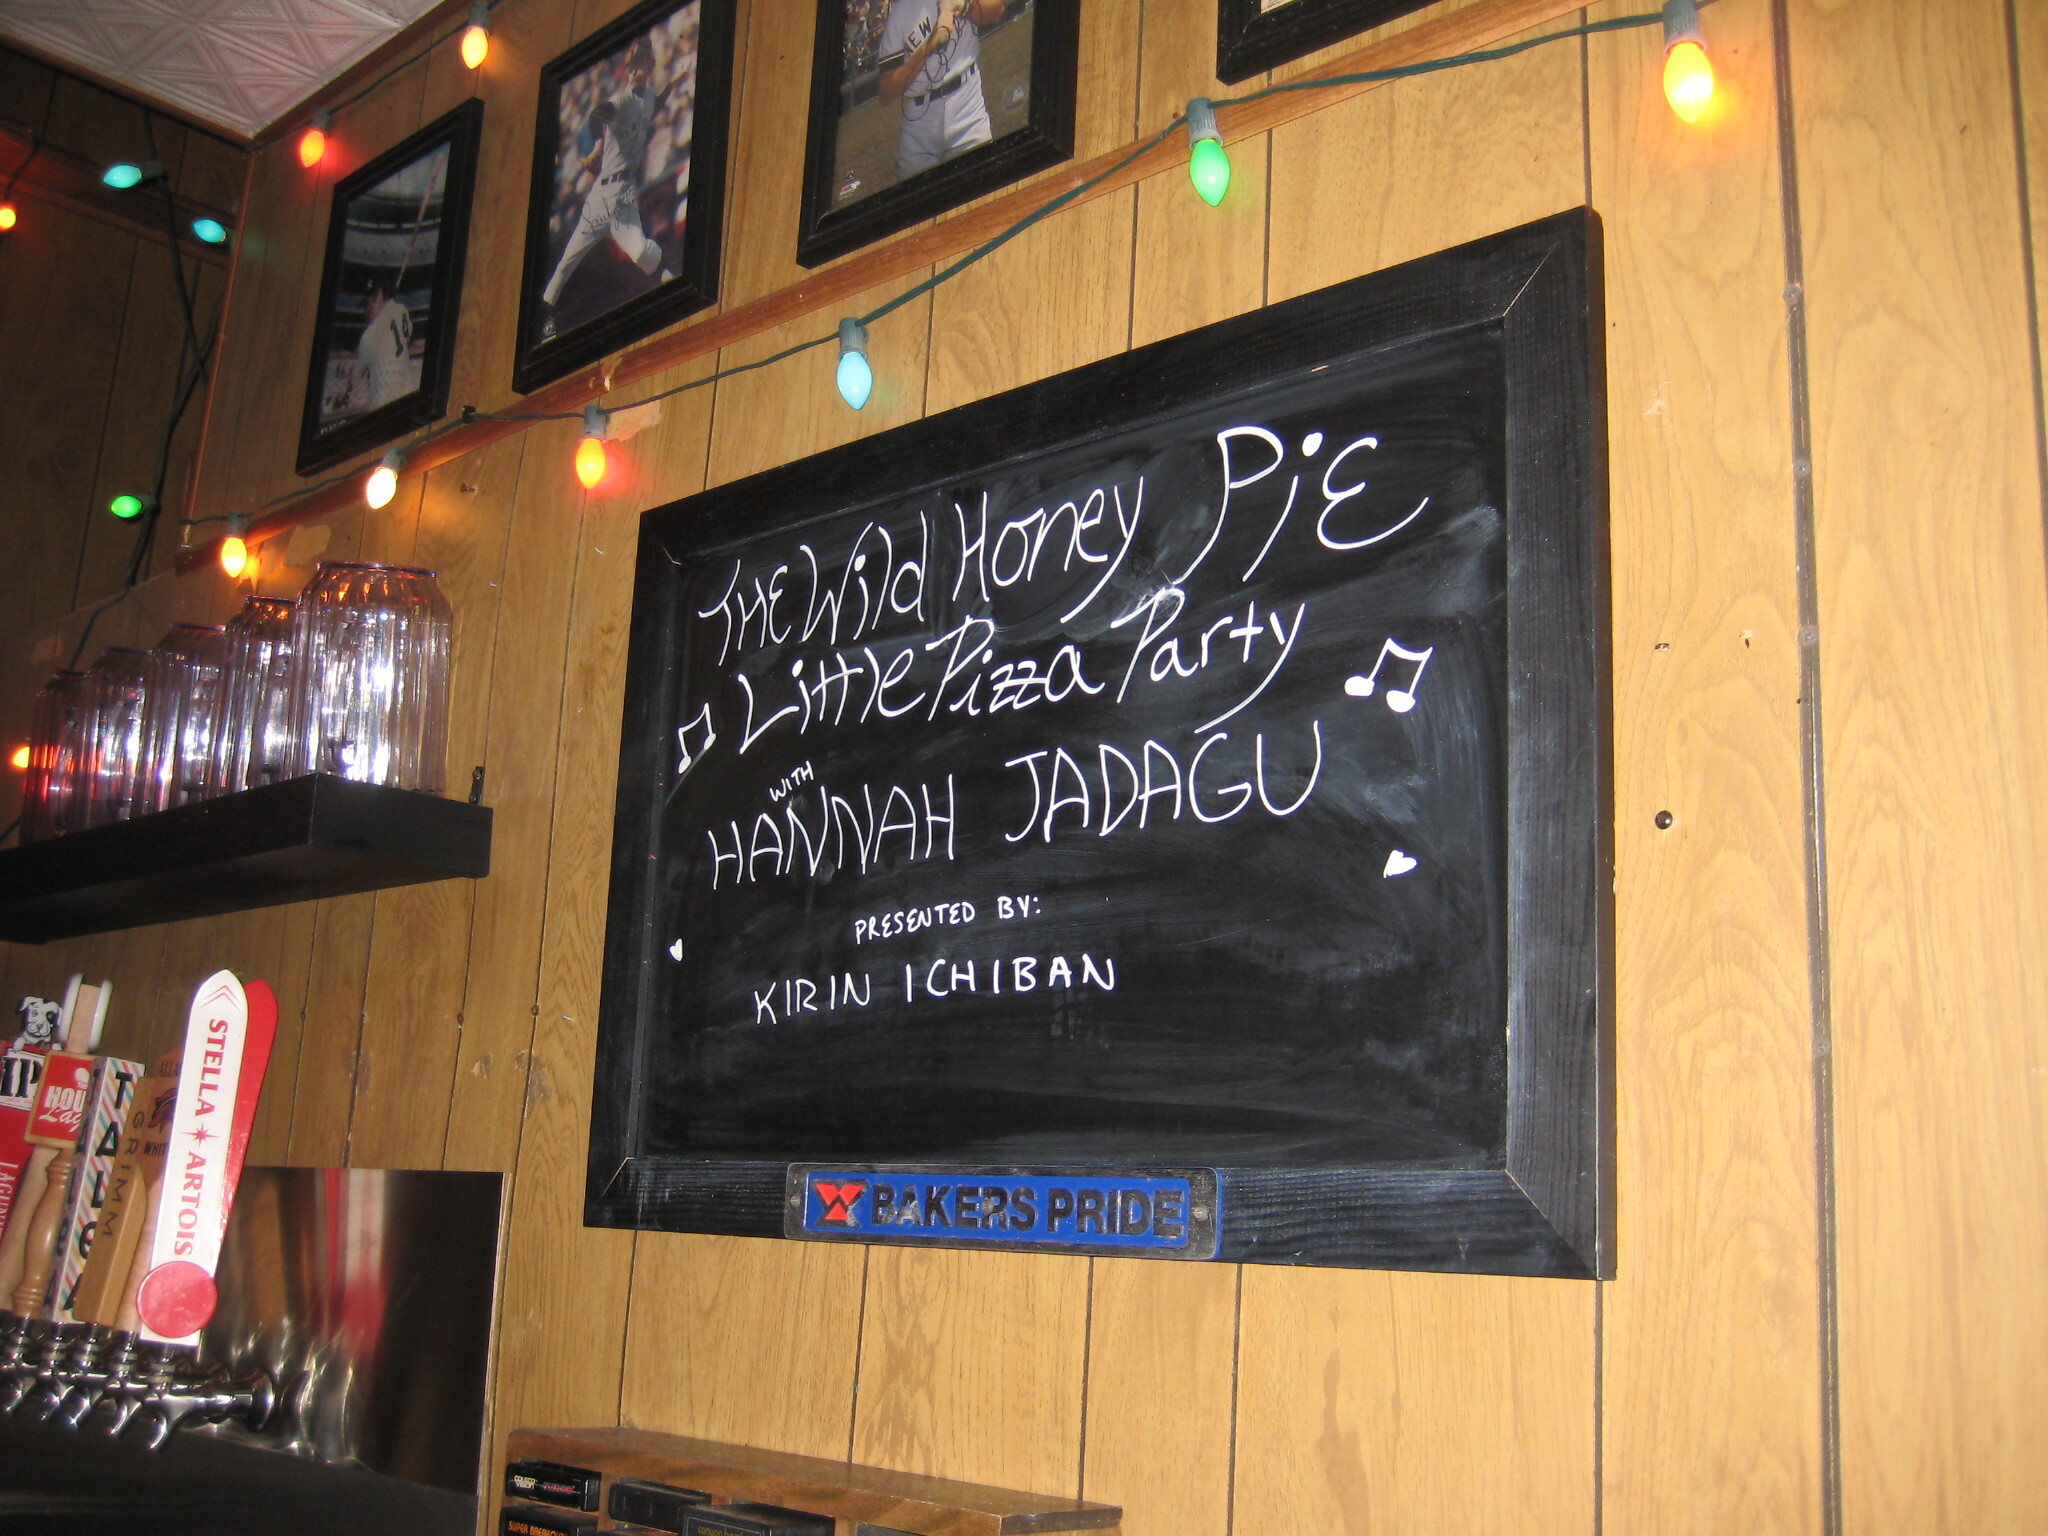 NEW
14
THE Wild Honey PiE
Little Pizza Party
WITH
HANNAH JADAGU
PRESENTED BY:
KIRIN ICHIBAN
BAKERS PRIDE
STELLA ARTOIS